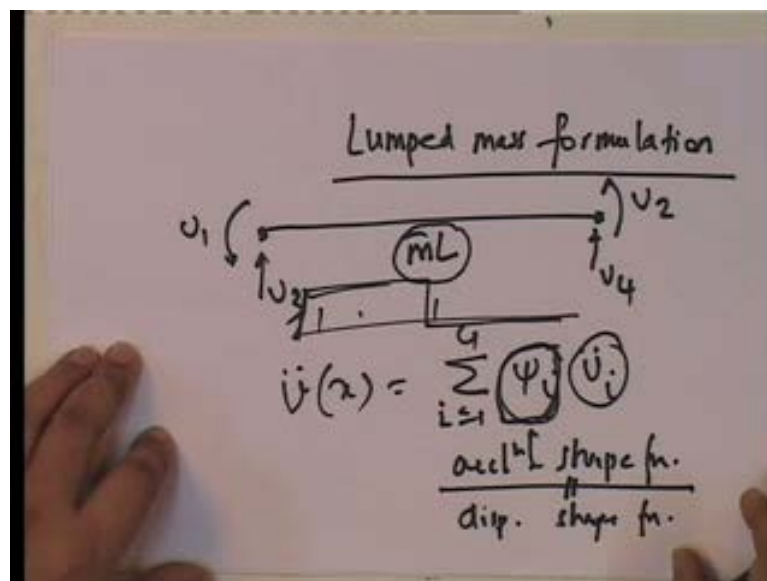 Lumped mass formulation
υ₁ υ₂
m̄L
υ₃ υ₄
1 1
ϋ(x) = Σ ψᵢ ϋᵢ
4
i=1
accl^n shape fn.
disp. shape fn.